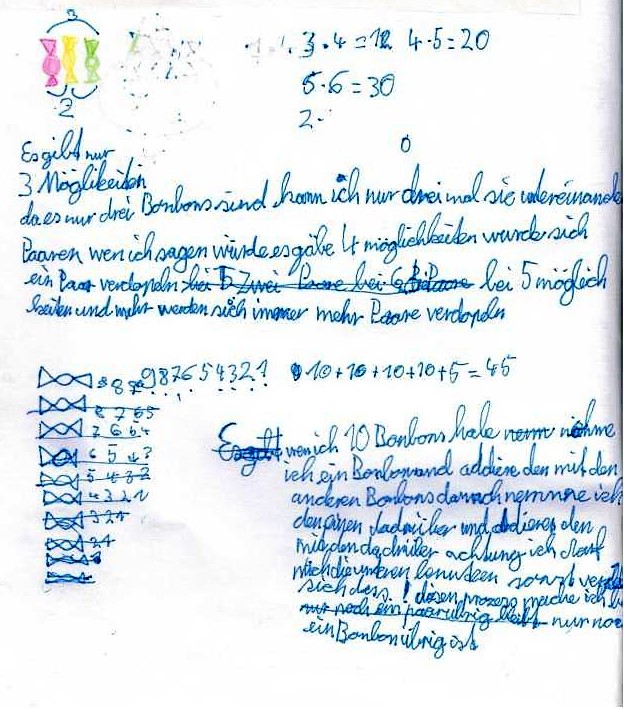 3
2
3·4=12 4·5=20
5·6=30
2·
0
Es gibt nur
3 Möglikeiten
da es nur drei Bonbons sind kann ich nur drei mal sie untereinande
Paaren wen ich sagen würde es gäbe 4 möglichkeiten wurde sich
ein Paar verdopeln bei 5 Zwei Paare bei 6 Paare bei 5 möglich
keiten und mehr werden sich immer mehr Paare verdopeln
987654321 10+10+10+10+5=45
8 7 6 5
7 6 5 4
6 5 4 3
5 4 3 2
4 3 2 1
3 2 1
2 1
Es gibt wen ich 10 Bonbons habe nehme
ich ein Bonbon und addire den mit den
anderen Bonbons danach nemme ich
den einen dadrüber und addiere den
mit den dadrüber achtung ich darf
nicht die unteren benutzen sonzt
sich dass! disen prozess mache ich
nur noch ein paar übrig bleibt nur noc
ein Bonbon übrig ist